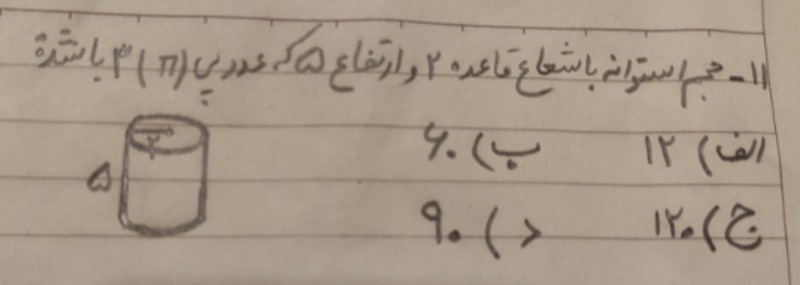 ۱۱- حجم استوانه با شعاع قاعده ۲ و ارتفاع ۵ که عدد پی (π) ۳ باشد؟
الف) ۱۲ ب) ۶۰
ج) ۱۲۰ د) ۹۰
۲
۵